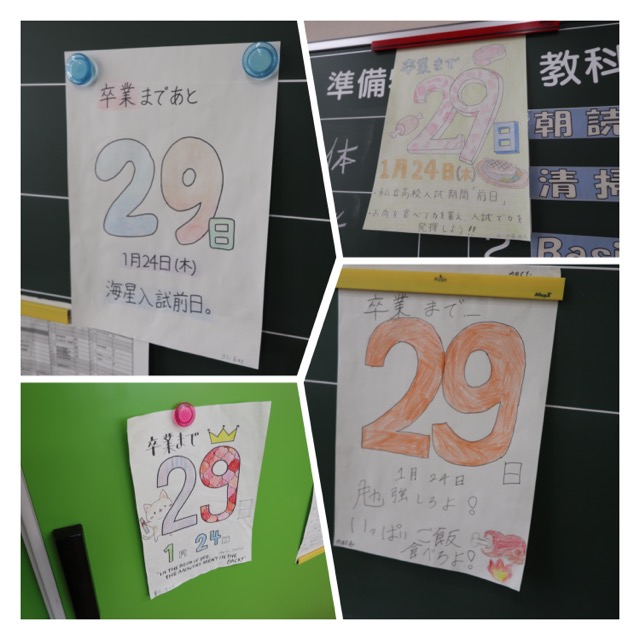 卒業まであと
29日
1月24日(木)
海星入試前日。
準備
教科
朝読
清掃
Basi
卒業まで
29日
1月24日(木)
・私立高校入試期間「前日」
・お肉を食べて力を蓄え、入試で力を
発揮しよう!!
卒業まで
29日
1月24日
卒業まで…
29日
1月24日
勉強しろよ!
いっぱいご飯
食べろよ!